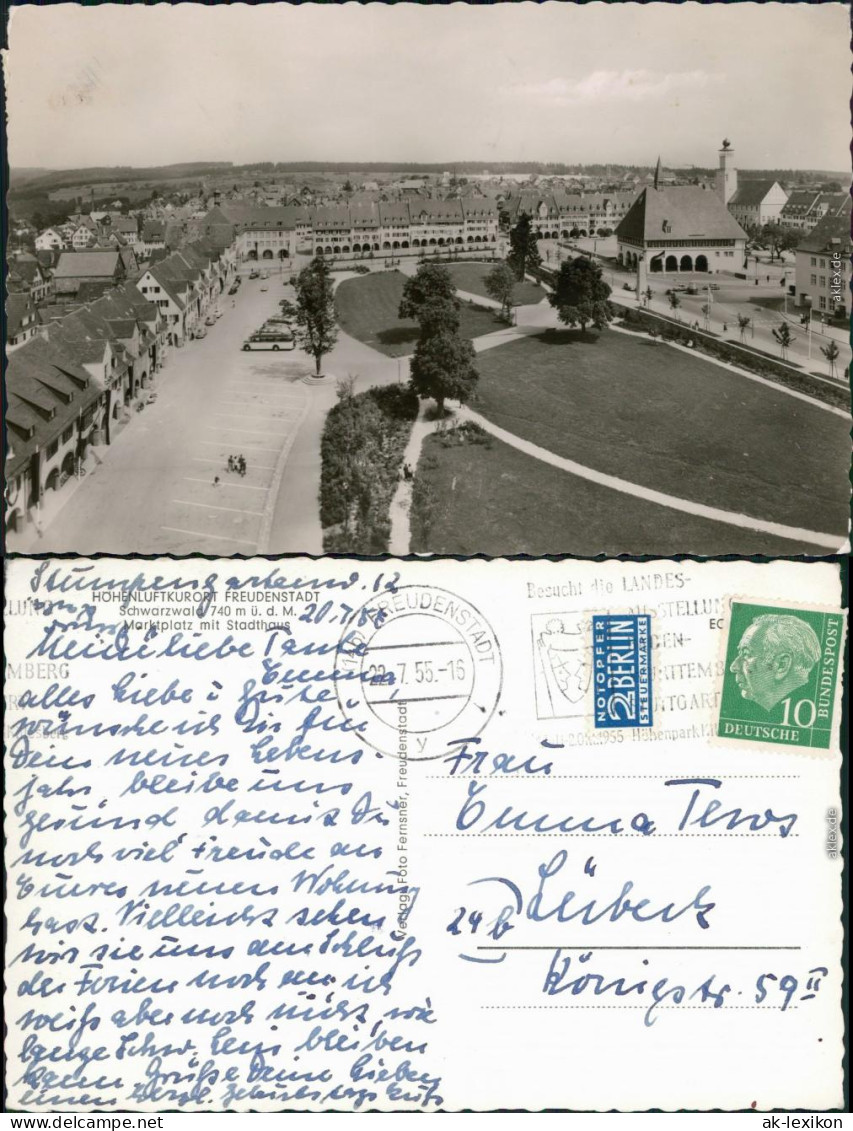 aklexoi.de
Stumpengartenw. 12
HÖHENLUFTKURORT FREUDENSTADT
Schwarzwald 740 m ü. d. M.
Marktplatz mit Stadthaus
20.7.55
Meine liebe Tante
Emma,
alles Liebe u. Gute
wünsche ich Dir für
Dein neues Lebens-
jahr bleibe uns
gesund damit Du
noch viel Freude an
Eurer neuen Wohnung
hast. Vielleicht sehen
wir sie uns am Schluß
der Ferien noch an, ich
weiß aber noch nicht, wie
lange Schw. bleiben
kann. Grüße Deine Lieben
einen herzl. Geburtstagskuß
Verlag: Foto Fernsner, Freudenstadt
FREUDENSTADT
22.7.55.-16
y
Besucht die LANDES-
AUSSTELLUNG
STUTTGART
1955 Höhenpark
NOTOPFER
2 BERLIN
STEUERMARKE
10
DEUTSCHE BUNDESPOST
Frau
Emma
24b Lübeck
Königstr. 59 II
aklexoi.de
ak-lexikon.com